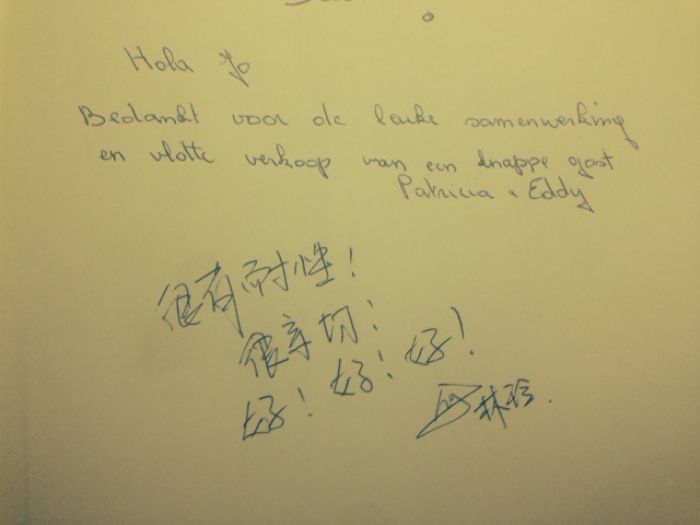 Hola Jo
Bedankt voor de leuke samenwerking
en vlotte verkoop van een knappe gast
Patricia & Eddy
很有耐性!
很亲切!
好! 好! 好!
林